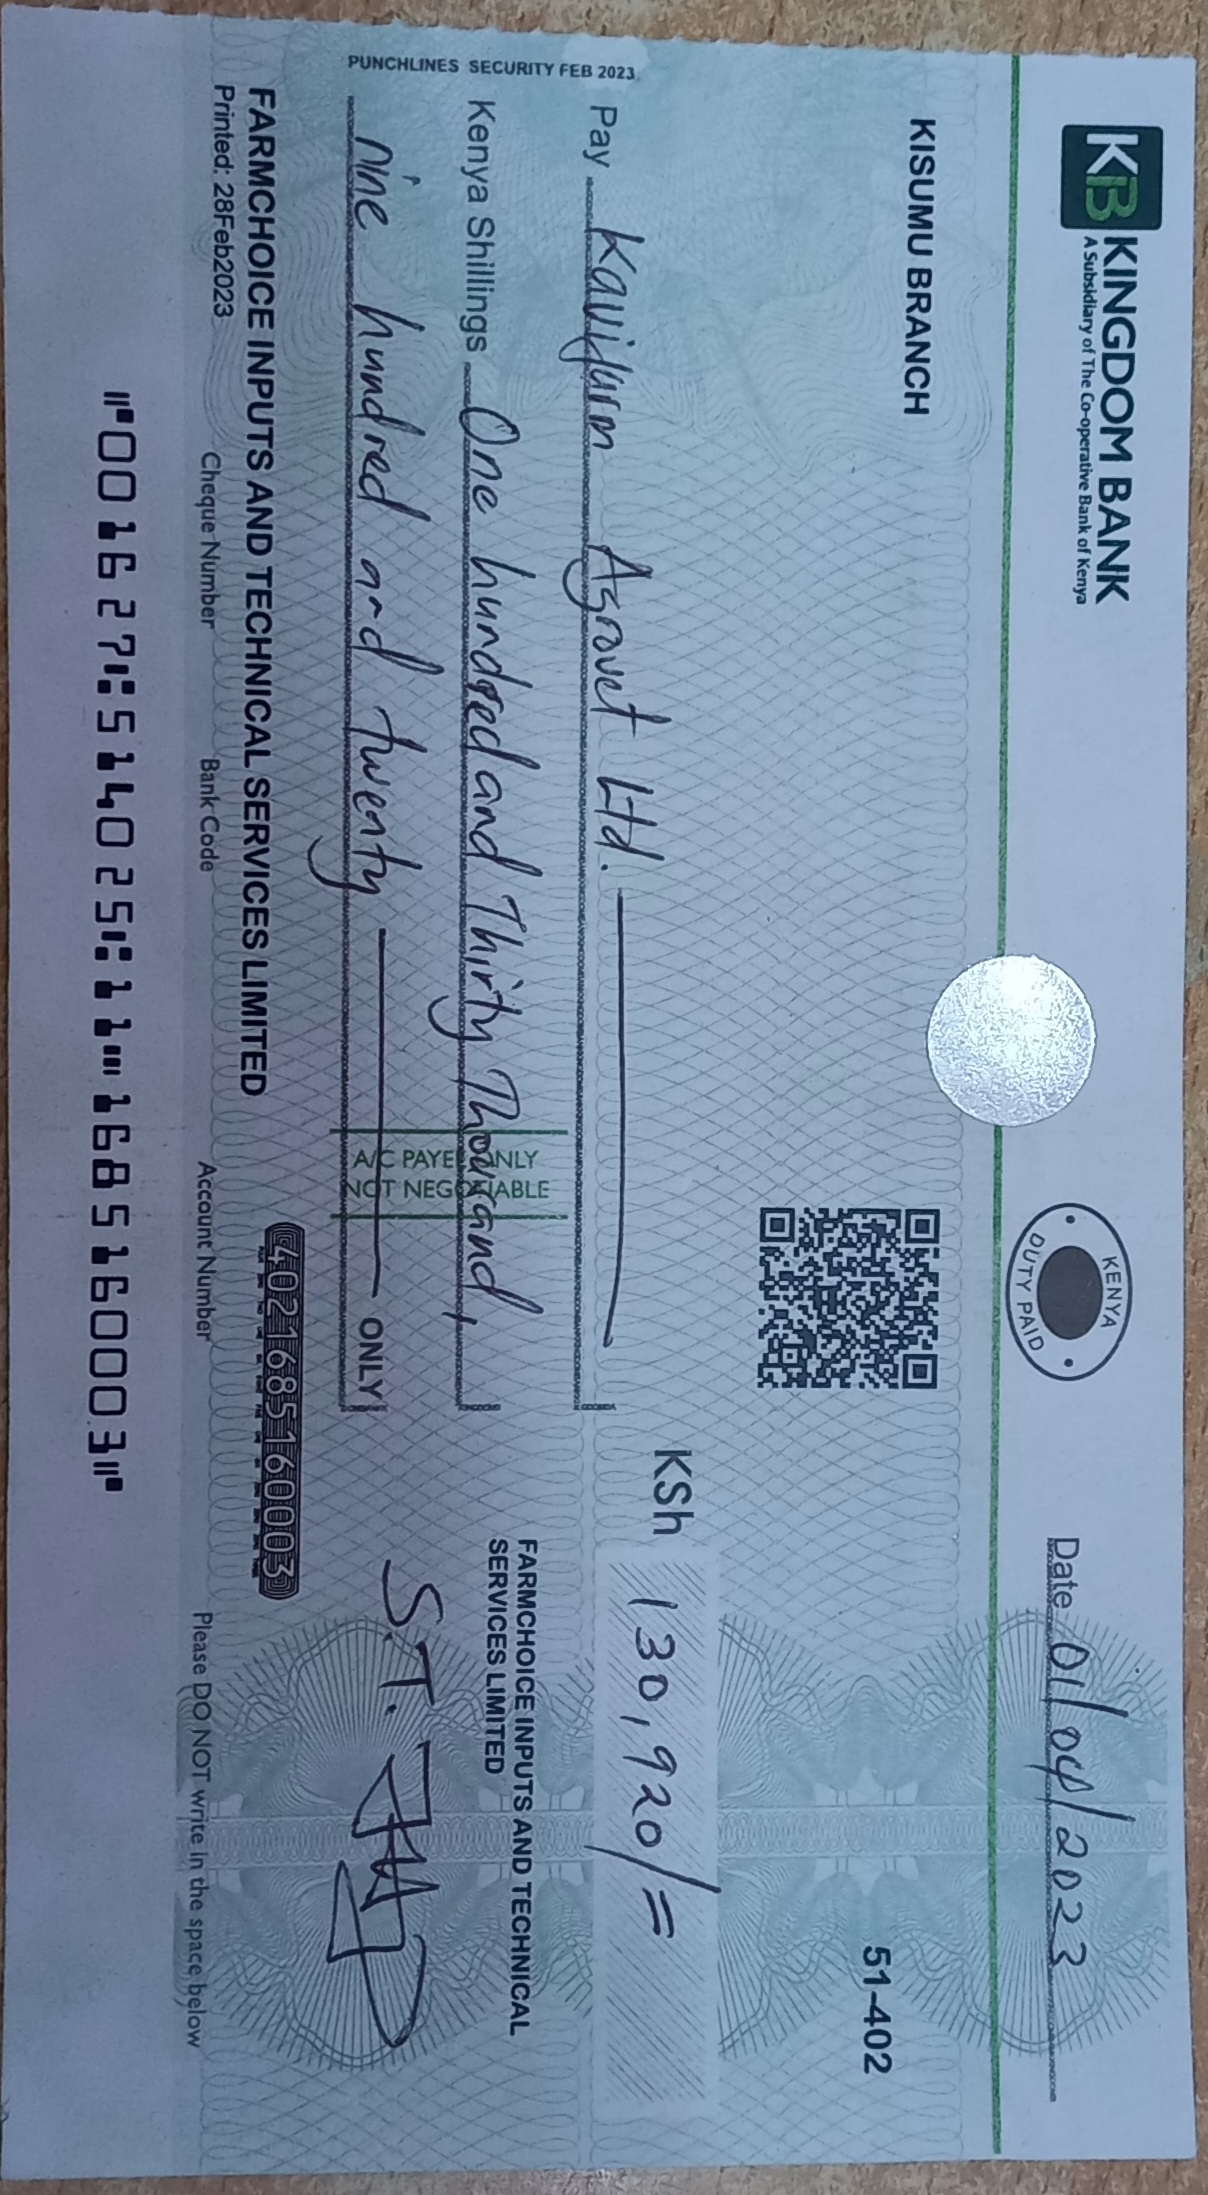 KB KINGDOM BANK
A Subsidiary of The Co-operative Bank of Kenya
KENYA
DUTY PAID
Date 01/04/2023
KISUMU BRANCH
51-402
PUNCHLINES SECURITY FEB 2023
Pay Kavifarm Agrovet Ltd.
KSh 130,920/=
Kenya Shillings One hundred and Thirty Thousand,
nine hundred and twenty ONLY
A/C PAYEE ONLY
NOT NEGOTIABLE
FARMCHOICE INPUTS AND TECHNICAL
SERVICES LIMITED
S.T.
FARMCHOICE INPUTS AND TECHNICAL SERVICES LIMITED
Printed: 28Feb2023
4021685160003
Cheque Number Bank Code Account Number Please DO NOT write in the space below
⑈001627⑆514025⑆11⑈1685160003⑈